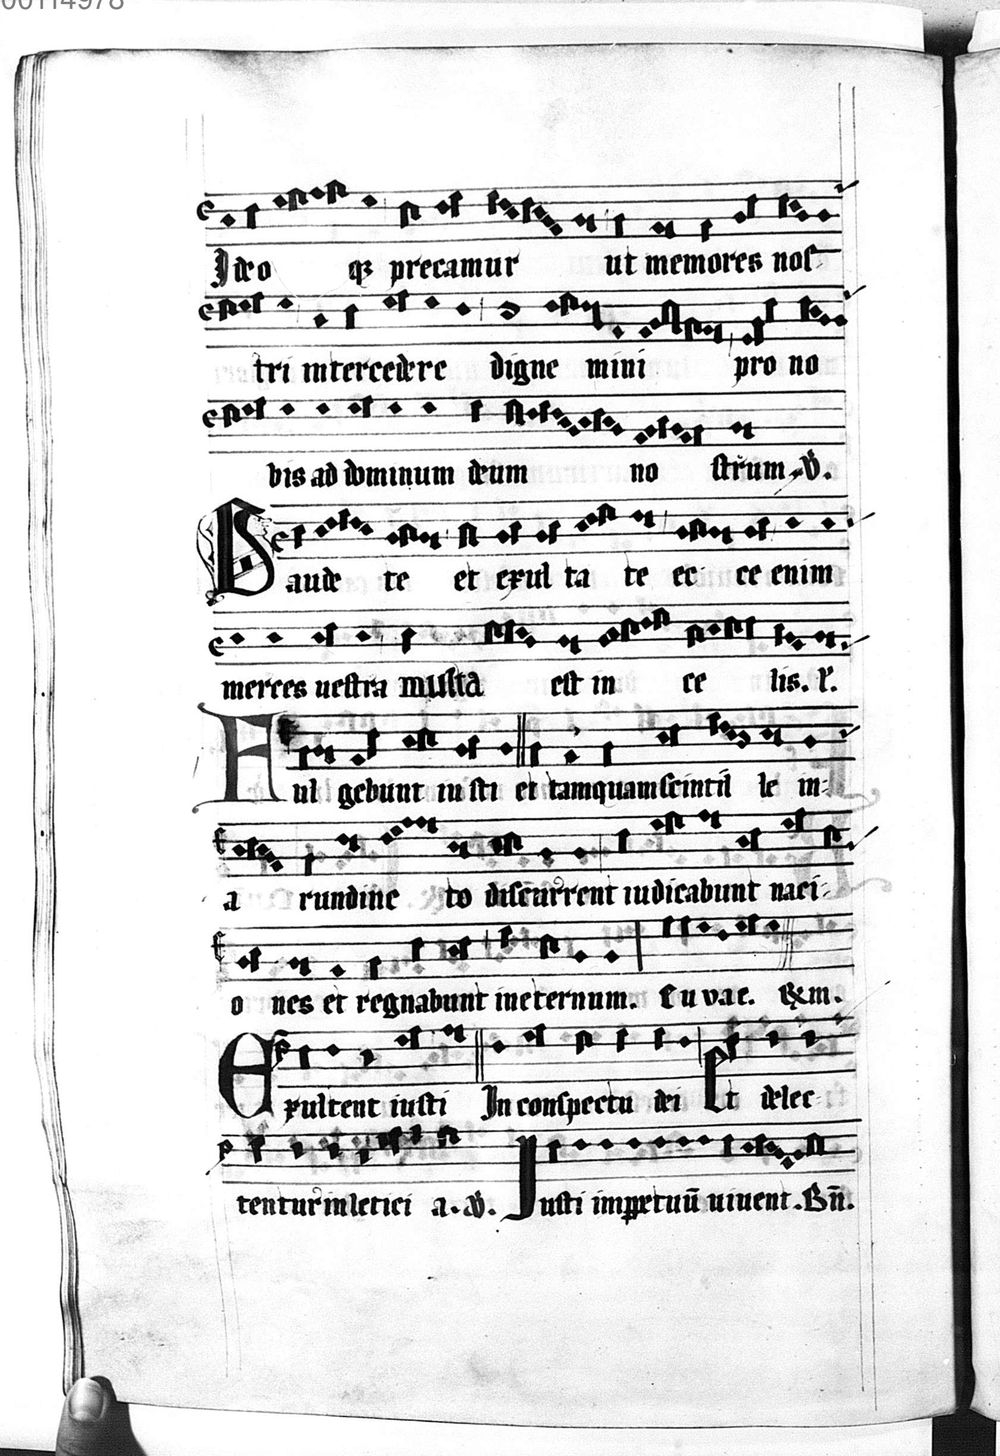 00114978
Ideo qz precamur ut memores nos
tri intercedere digne mini pro no
bis ad dominum deum no strum. V.
Gaude te et exul ta te ec ce enim
merces uestra multa est in ce lis. R.
Ful gebunt iusti et tamquam scintil le in
a rundine to discurrent iudicabunt naci
o nes et regnabunt ineternum. Euvae. &m.
Exultent iusti In conspectu dei Et delec
tentur inletici a. V. Iusti imppetuū uiuent. Bñ.